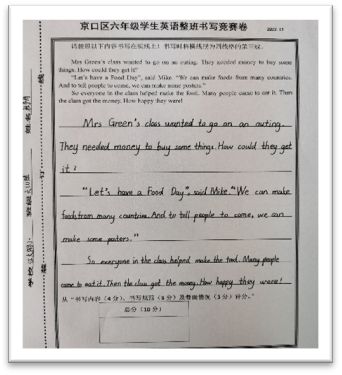 京口区六年级学生英语整班书写竞赛卷
2022.11
请按照以下内容书写在实线上！书写时将横线视为四线格的第三线。
Mrs Green's class wanted to go on an outing. They needed money to buy some
things. How could they get it?
"Let's have a Food Day", said Mike. "We can make foods from many countries.
And to tell people to come, we can make some posters."
So everyone in the class helped make the food. Many people came to eat it. Then
the class got the money. How happy they were!
Mrs Green's class wanted to go on an outing.
They needed money to buy some things. How could they get
it?
"Let's have a Food Day", said Mike. "We can make
foods from many countries. And to tell people to come, we can
make some posters."
So everyone in the class helped make the food. Many people
came to eat it. Then the class got the money. How happy they were!
从"书写内容（4分）、书写规范（3分）及卷面情况（3分）评分。"
总分（10分）
学校
班级
姓名
线